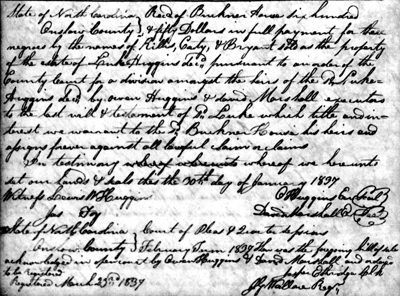 State of North Carolina } Recd of Buckner House six hundred
Onslow County } & fifty Dollars in full payment for three
negroes by the names of Killis, Caty, & Bryant sold as the property
of the estate of Luke Huggins decd, pursuant to an order of the
County Court for a division amongst the heirs of the sd Luke
Huggins decd by Owen Huggins & David Marshall executors
to the last will & testament of sd Luke which title and in-
terest we warrant to the sd Buckner House his heirs and
assigns forever against all lawful claim or claims
In testimony whereof we hereunto
set our hands & seals this the 30th day of January 1837
Witness Lewis W Huggins O Huggins Exr Seal
Jas Foy David Marshall Ex Seal
State of North Carolina } Court of Pleas & Quarter Sessions
Onslow County } February Term 1837 Then was the foregoing bill of sale
acknowledged in open court by Owen Huggins & David Marshall and ordered
to be registered Jasper Etheridge Clk
Registered March 23rd 1837
Wallace Regr